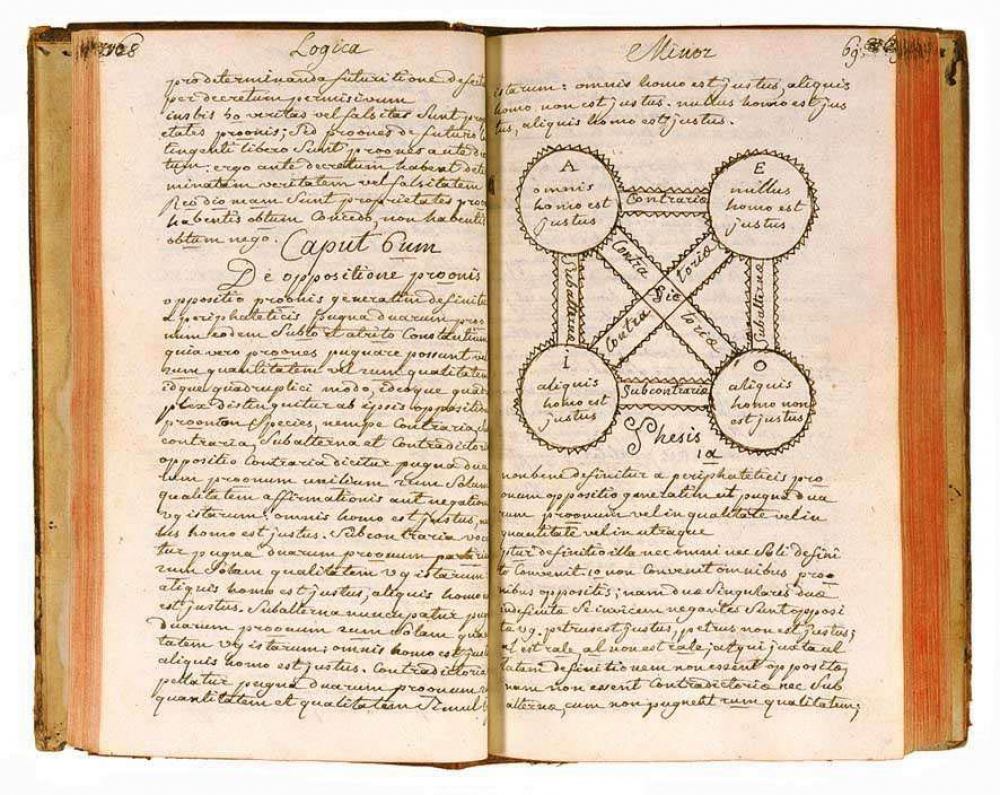 68 Logica
pro determinanda futuritione defect
per decretum permisivum
insbis 5o veritas vel falsitas sunt pro
etates proonis; sed proones de futuro
tingenti libero sunt proones ante de
tum: ergo ante decretum habent dete
minatam veritatem vel falsitatem
Reodio mam sunt proprietates proo
habentis obtum concedo, non habentis
obtum nego.
Caput 6um
De oppositione proonis
oppositio proonis generatim definitur
a periphateticis pugna duarum proo
num eodem subto et atrito constantium
quia vero proones pugnare possunt vel
rum quantitatem vel rum qualitatem
idque quadruplici modo, ideoque quad
plex distinguitur ab ipsis oppositio
proonton species, nempe contraria,
contraria, subalterna et contradictori
oppositio contraria dicitur pugna dua
rum proonum unilium rum solam
qualitatem affirmationis aut negation
vg istarum: omnis homo est justus,
lus homo est justus. Subcontraria voc
tur pugna duarum proonum partiu
rum solam qualitatem vg istarum
aliquis homo est justus, aliquis homo
est justus. Subalterna nuncupatur pug
duarum proonum rum solam qua
tatem vg istarum: omnis homo est just
aliquis homo est justus. Contradictoria
pellatur pugna duarum proonum
quantitatem et qualitatem simul
Minor 69
istarum: omnis homo est justus, aliquis
homo non est justus. nullus homo est jus
tus, aliquis homo est justus.
A
omnis
homo est
justus
Contrariæ
E
nullus
homo est
justus
Subalternæ
Contra
dic
toriæ
Contra
toriæ
Subalternæ
I
aliquis
homo est
justus
Subcontrariæ
O
aliquis
homo non
est justus
Thesis
1a
non bene definitur a periphateticis pro
onum oppositio generatim ut pugna dua
rum proonum vel in qualitate vel in
quantitate vel in utraque
ptur definitio illa nec omni nec soli defini
to convenit. 1o non convenit omnibus proo
nibus oppositis; nam duæ singulares duæ
indefinitæ si invicem negantes sunt opposi
tæ vg. petrus est justus, petrus non est justus;
est rale, al non est rale, atqui juxta al
latam definitionem non essent oppositæ,
nam non essent contradictoriæ nec sub
alternæ, cum non pugnent rum qualitatem;